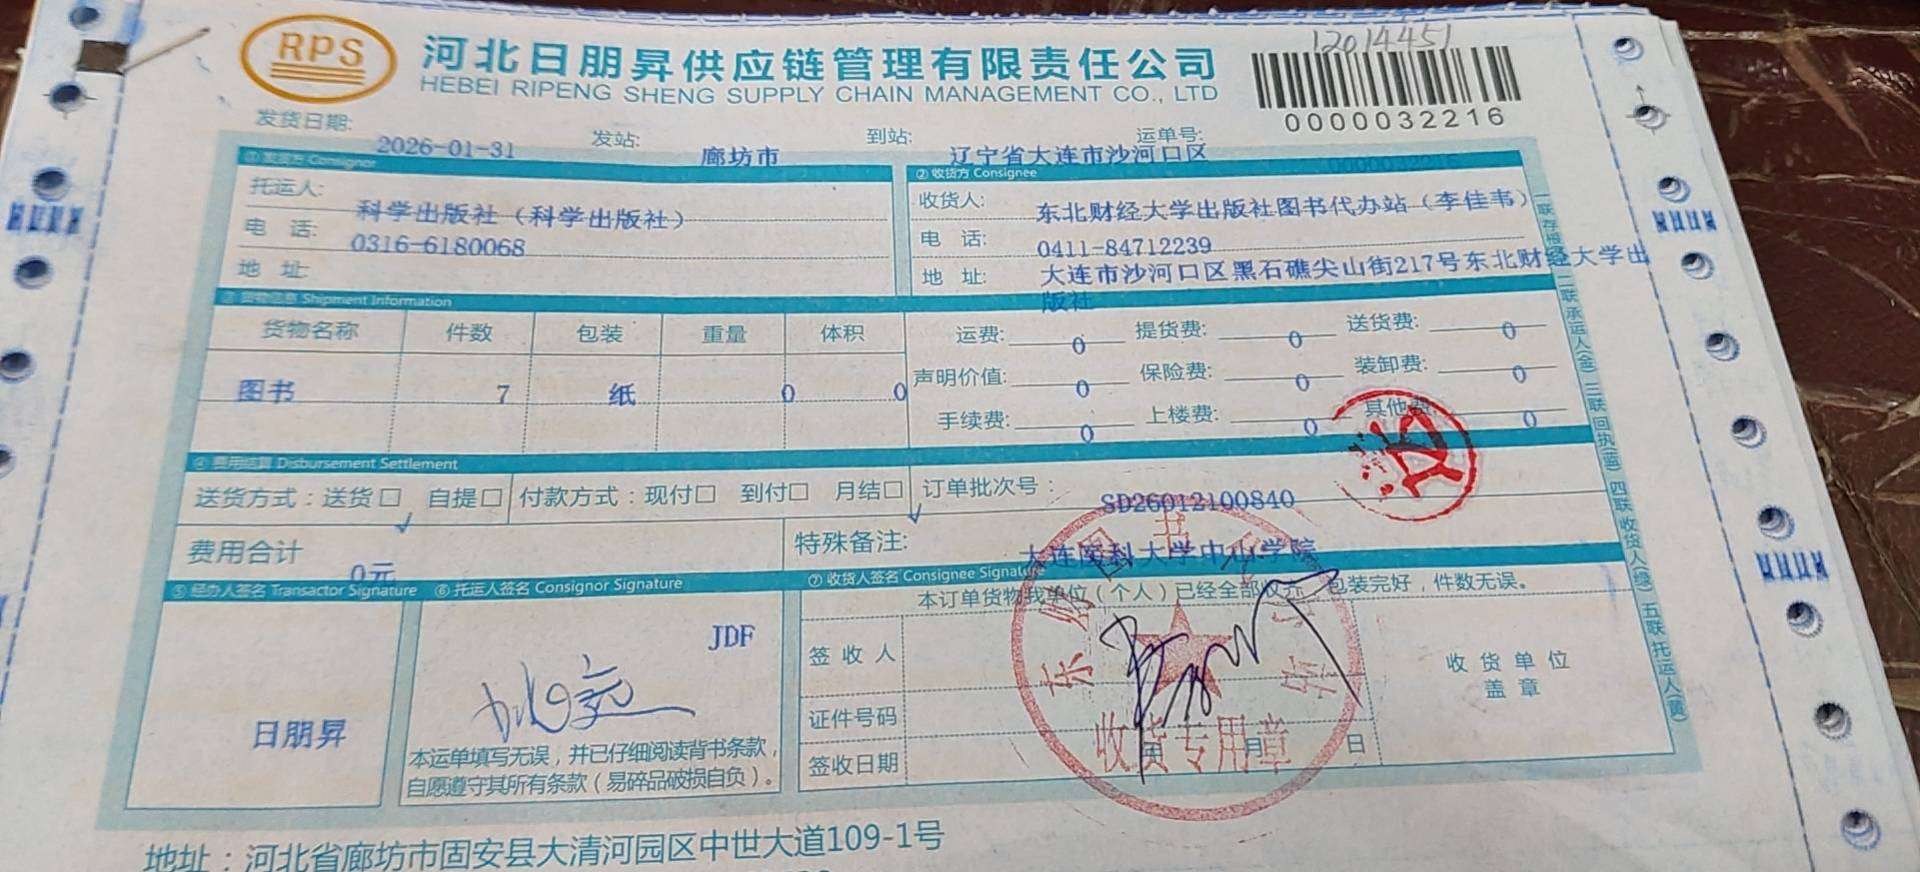 12014451
RPS
河北日朋昇供应链管理有限责任公司
HEBEI RIPENG SHENG SUPPLY CHAIN MANAGEMENT CO., LTD
0000032216
发货日期: 2026-01-31 发站: 廊坊市 到站: 辽宁省大连市沙河口区 运单号: 0000032216
① 发货方 Consignor ② 收货方 Consignee
托运人: 科学出版社（科学出版社） 收货人: 东北财经大学出版社图书代办站（李佳韦）
电 话: 0316-6180068 电 话: 0411-84712239
地 址: 地 址: 大连市沙河口区黑石礁尖山街217号东北财经大学出
版社
③ 货物信息 Shipment Information
货物名称 件数 包装 重量 体积 运费: 0 提货费: 0 送货费: 0
图书 7 纸 0 0 声明价值: 0 保险费: 0 装卸费: 0
手续费: 0 上楼费: 0 其他费: 0
④ 费用结算 Disbursement Settlement
送货方式：送货□ 自提□ 付款方式：现付□ 到付□ 月结□ 订单批次号： SD26012100840
✓ ✓
费用合计 0元 特殊备注: 大连医科大学中山学院
⑤ 经办人签名 Transactor Signature ⑥ 托运人签名 Consignor Signature ⑦ 收货人签名 Consignee Signature
本订单货物我单位（个人）已经全部收齐，包装完好，件数无误。
JDF
签 收 人
收 货 单 位
盖 章
证件号码
日朋昇
签收日期 月 日
收货专用章
本运单填写无误，并已仔细阅读背书条款，
自愿遵守其所有条款（易碎品破损自负）。
一联存根 二联承运人(金) 三联回执(蓝) 四联收货人(绿) 五联托运人(黄)
地址：河北省廊坊市固安县大清河园区中世大道109-1号